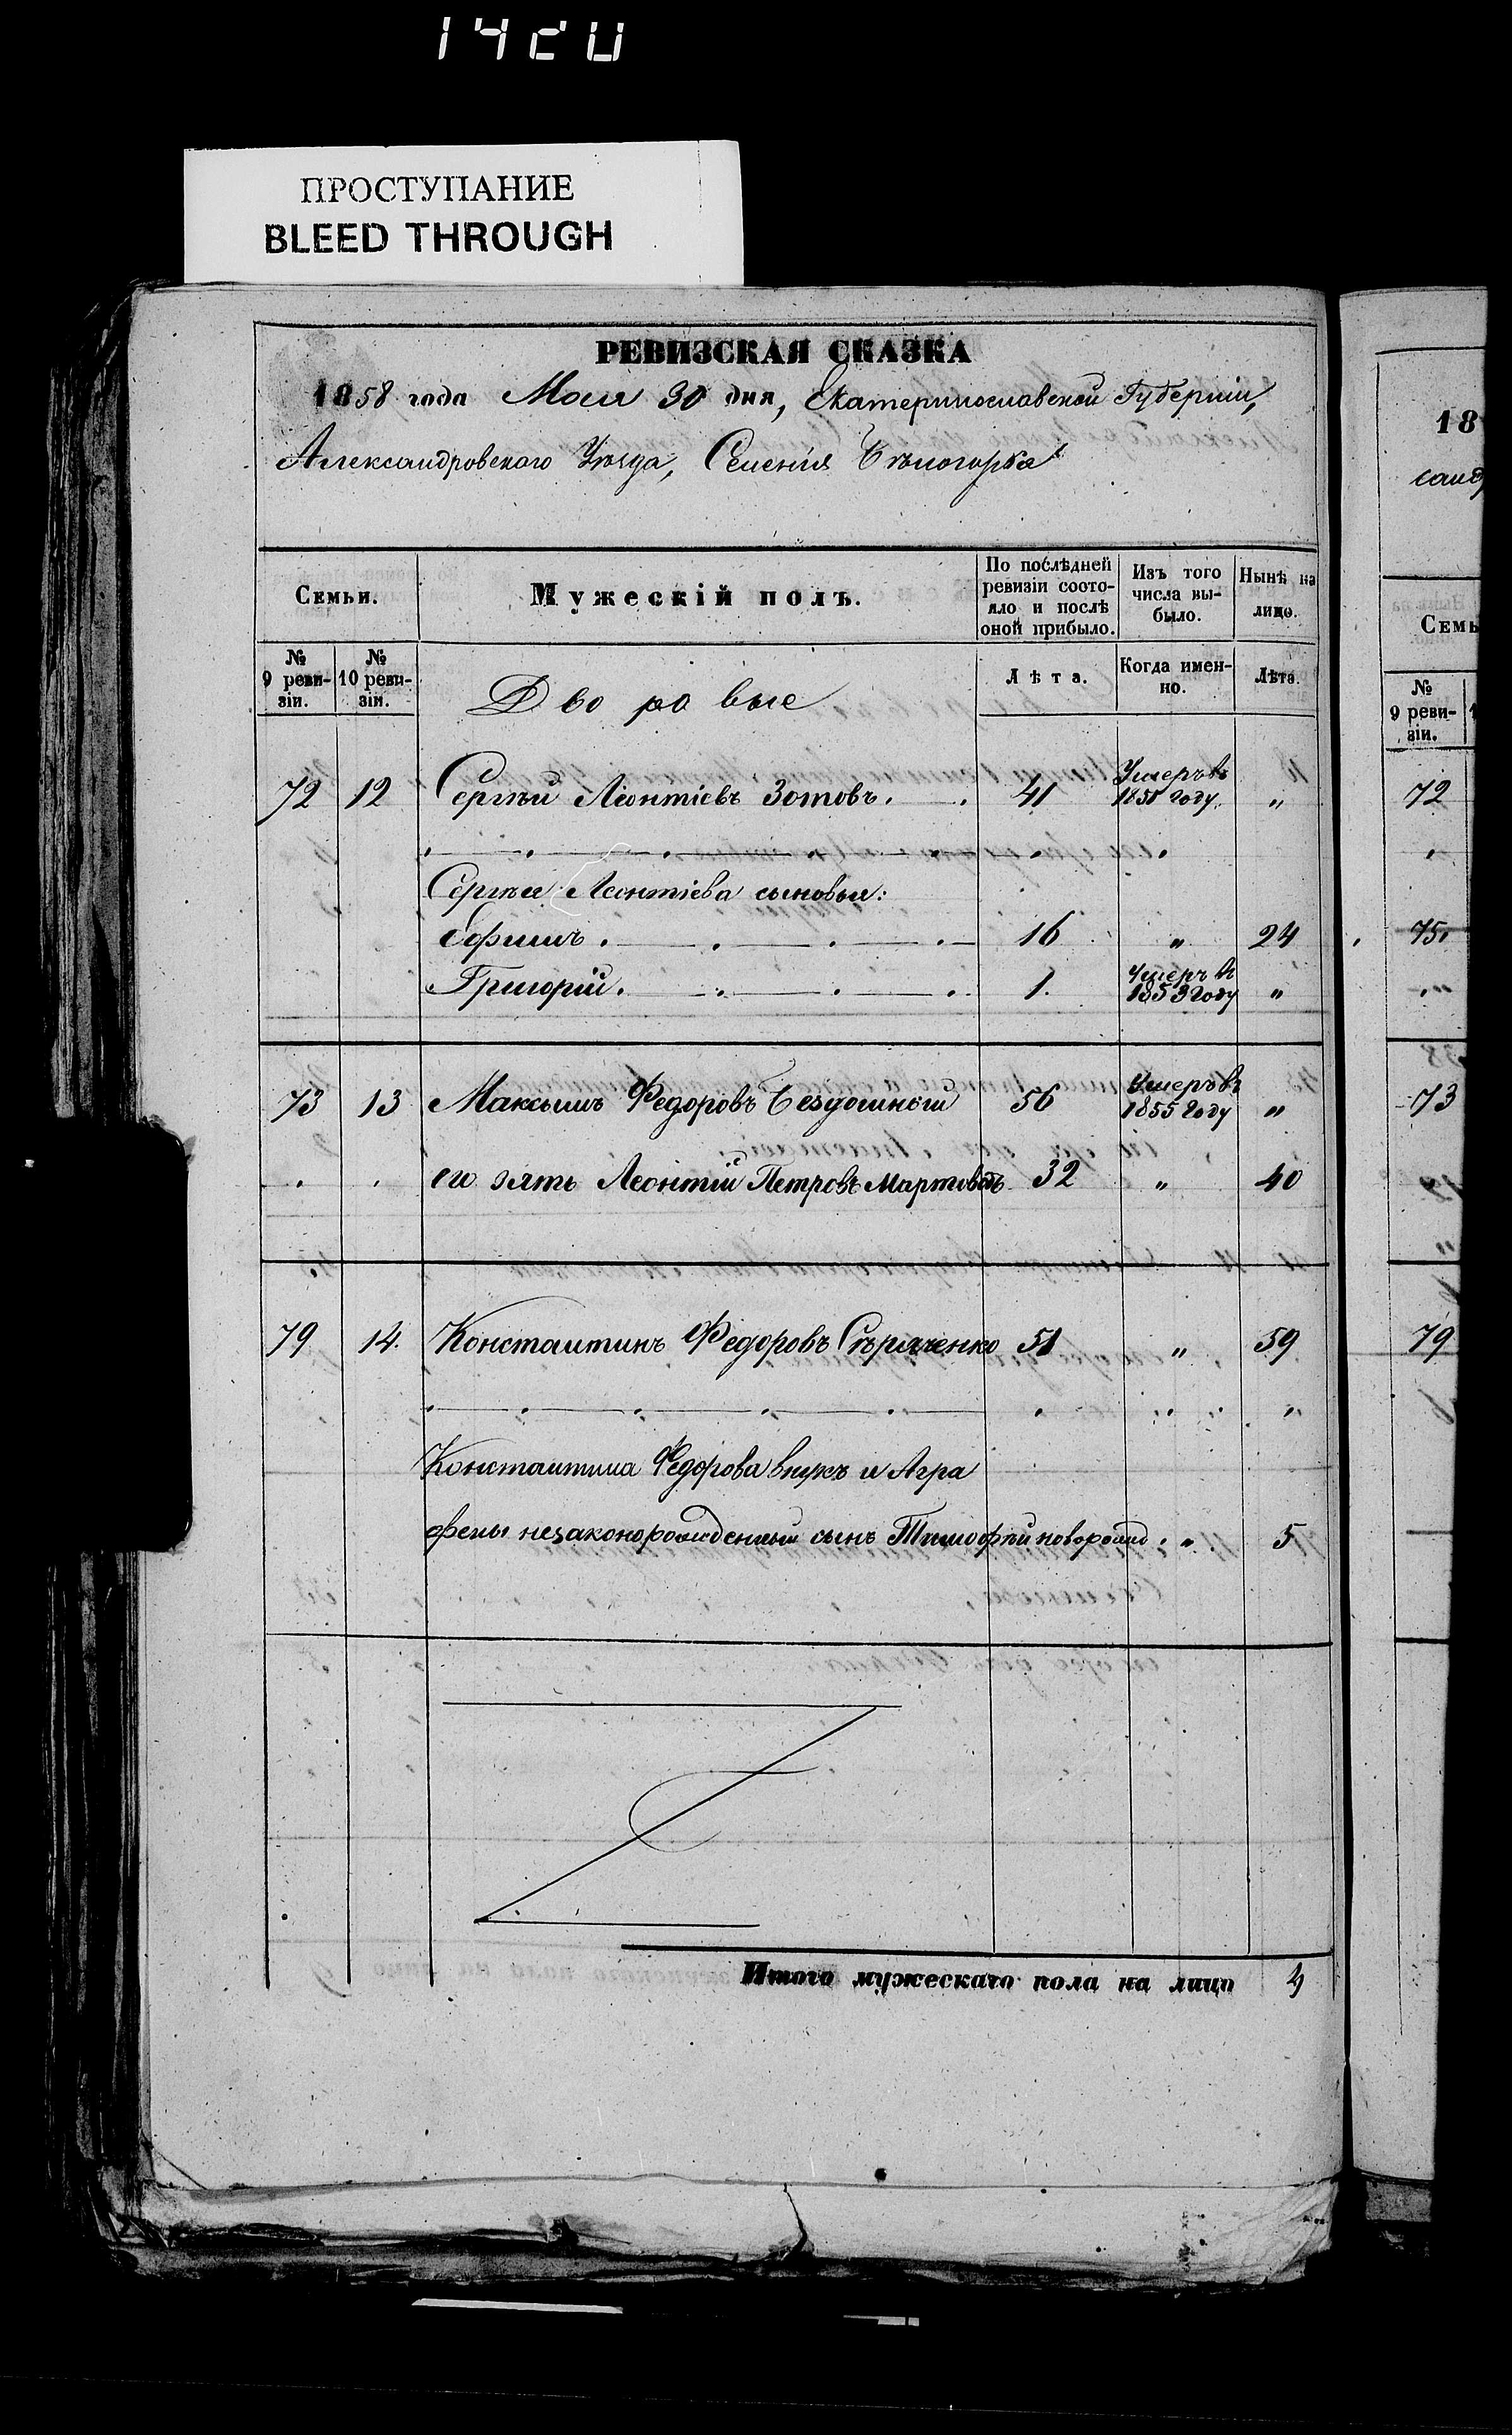 ПРОСТУПАНИЕ
BLEED THROUGH
РЕВИЗСКАЯ СКАЗКА
1858 года Мая 30 дня, Екатеринославской Губерніи,
Александровского Уѣзда, Селенія Бѣлогорка
Семьи. Мужескій полъ. По послѣдней ревизіи состояло и послѣ оной прибыло. Изъ того числа выбыло. Нынѣ на лицо.
№ 9 ревизіи. № 10 ревизіи. Дворовые Лѣта. Когда именно. Лѣта.
72 12 Сергѣй Леонтіевъ Зотовъ. 41 Умеръ въ 1851 году. "
Сергѣя Леонтіева сыновья:
Ефимъ. 16 " 24
Григорій. 1. Умеръ въ 1853 году "
73 13 Максымъ Федоровъ Бездомный 56 Умеръ въ 1855 году "
его зять Леонтій Петровъ 32 " 40
79 14. Константинъ Федоровъ Сѣряченко 51 " 59
Константина Федорова внукъ и Агра
фены незаконорожденный сынъ Тимофѣй новорожд. " 5
Итого мужескаго пола на лицо 4
18
санд
Семь
№
9 реви-
зіи.
72
75
73
79